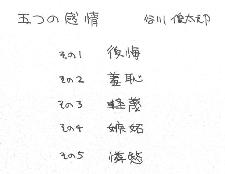 五つの感情 谷川俊太郎
その1 後悔
その2 羞恥
その3 軽蔑
その4 嫉妬
その5 憐愍